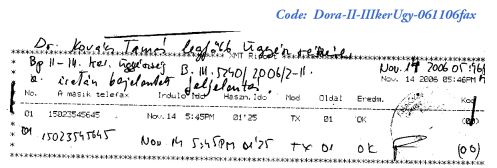 Code: Dora-II-IIIkerUgy-061106fax
Dr. Kovács Tamás legfőbb ügyész részére
XMT Nov. 14 2006 05:46PM
Bp II-III. ker. ügyészség B. III. 5240/2006/2-II. Nov. 14 2006 05:46PM
iratán bejelentett feljelentés.
No. A másik telefax Induló Idő Haszn.Idő Mod Oldal Eredm. Kod
01 15023545645 Nov.14 5:45PM 01'25 TX 01 OK (00)
01 15023545645 Nov 14 5:45PM 01'25 TX 01 OK (00)